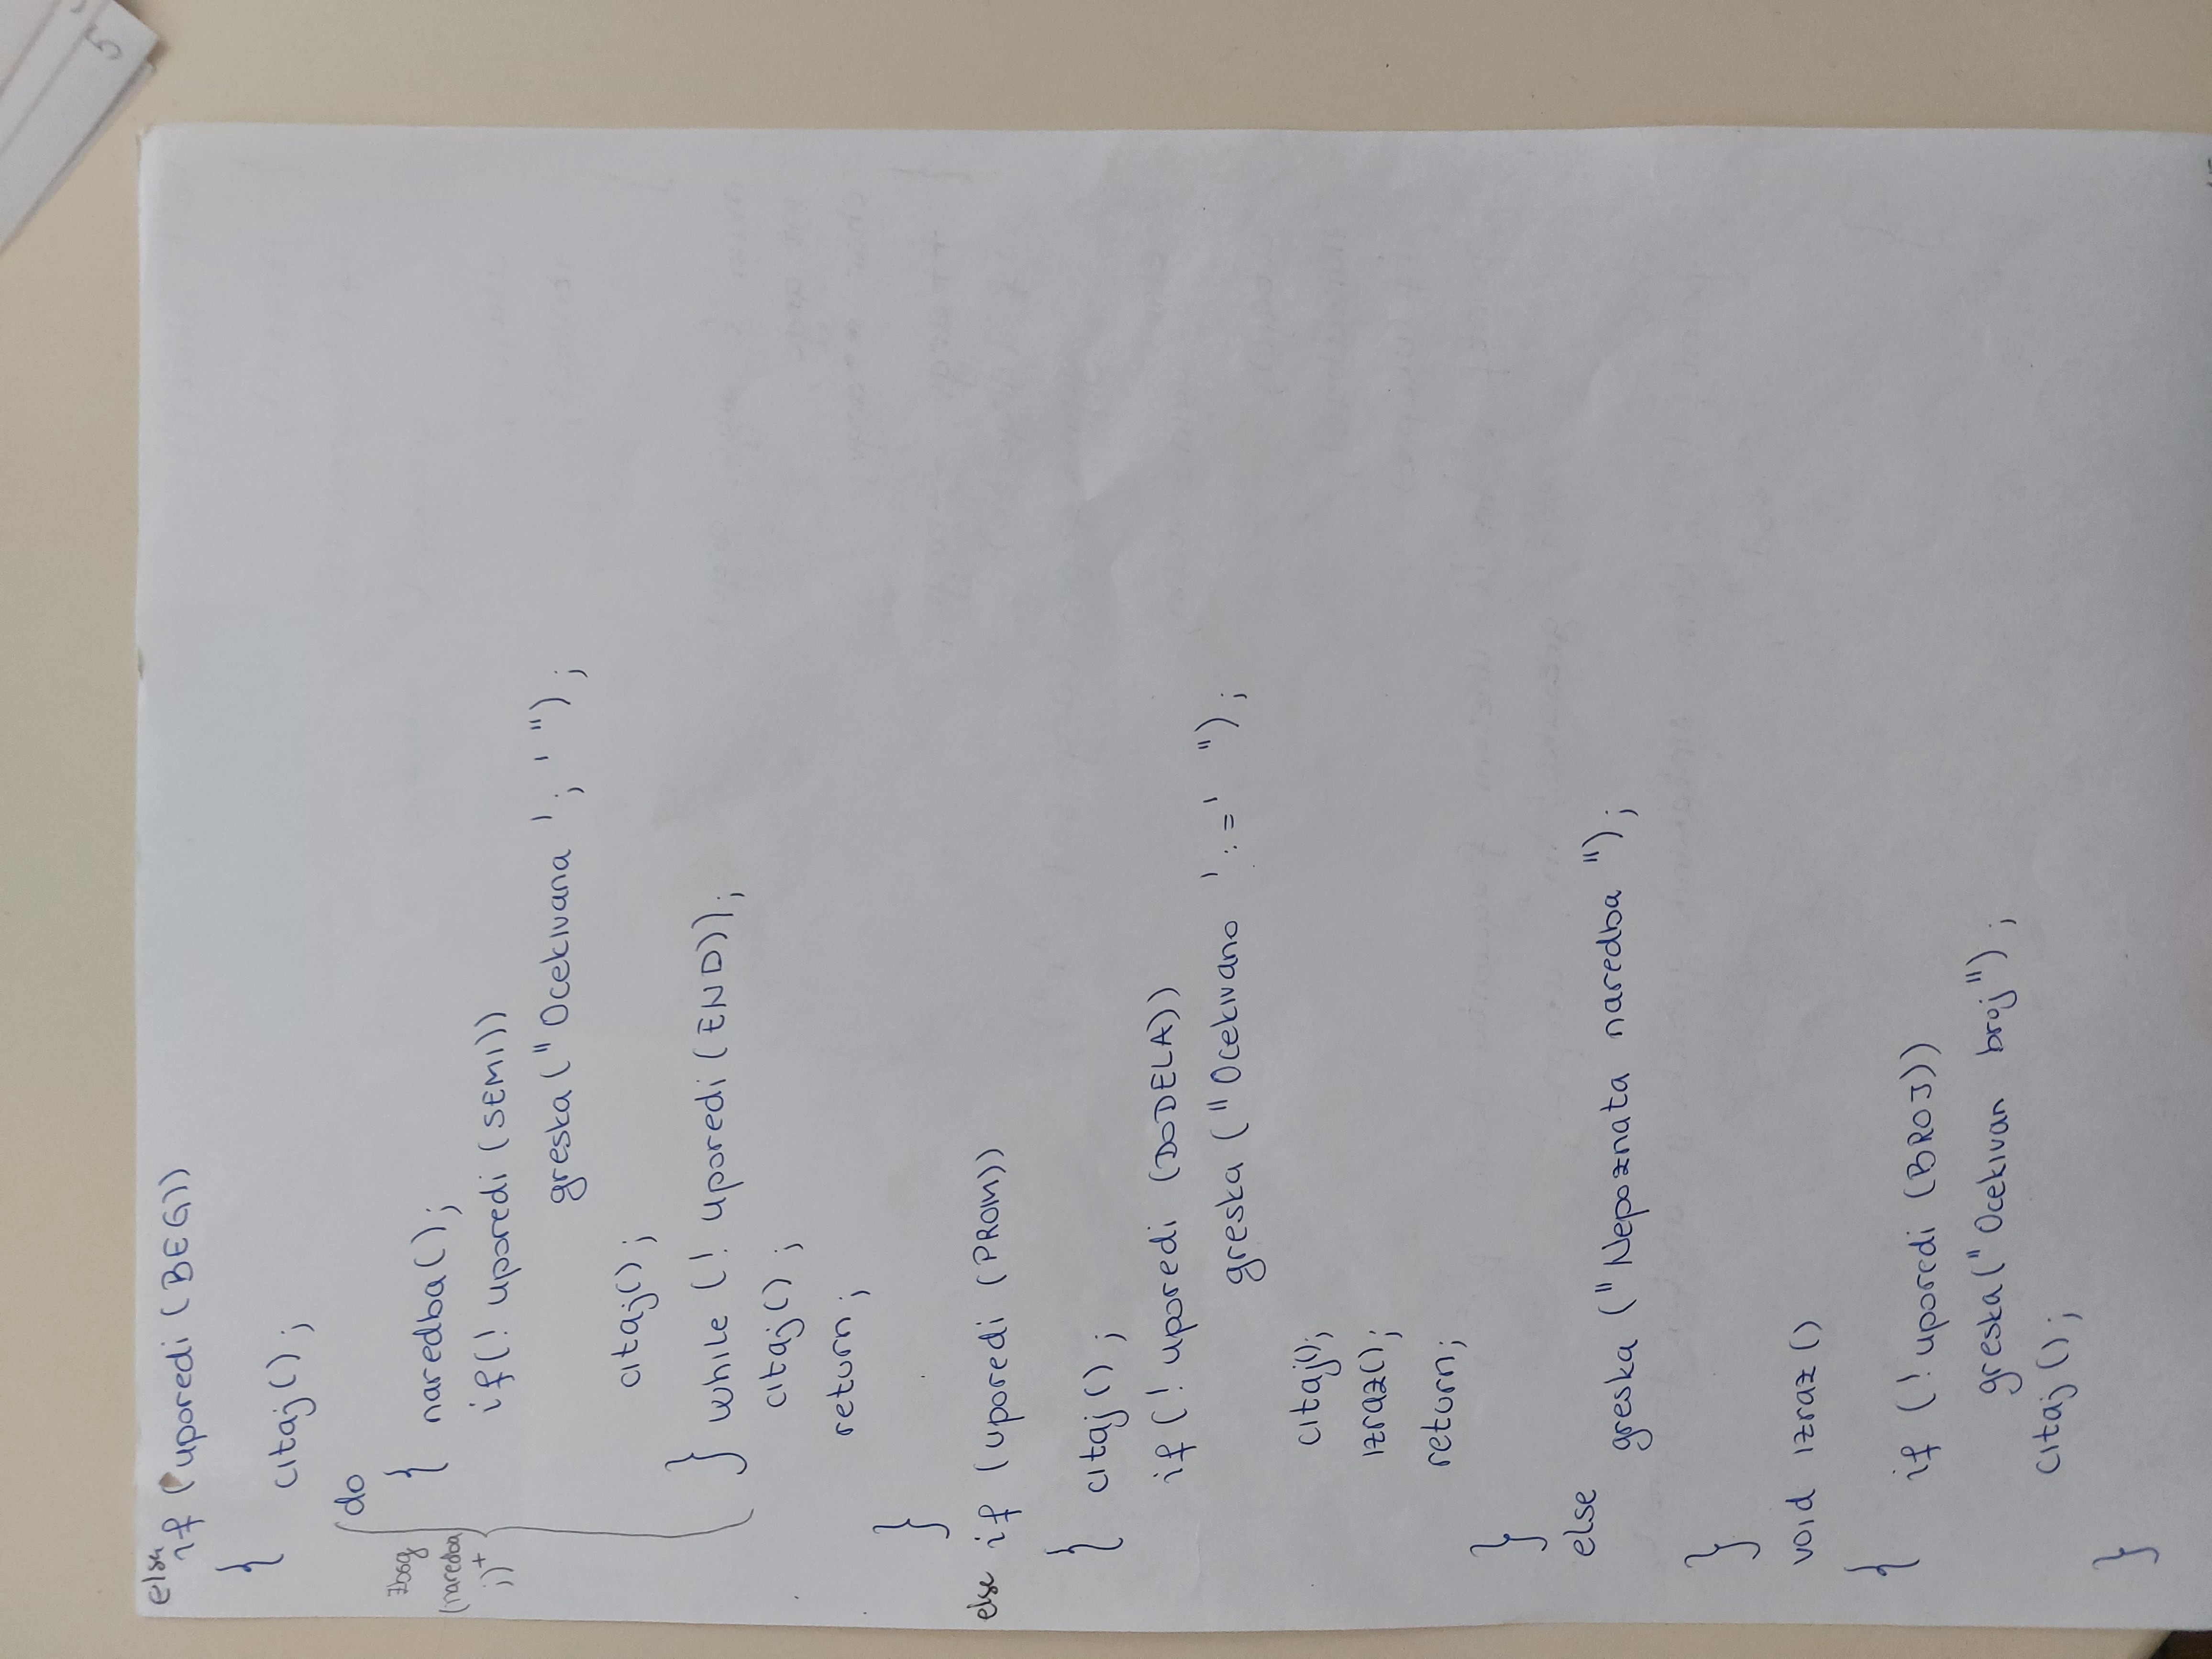 else
if (uporedi (BEG))
{
citaj();
do
zbog
(naredba
;)+
{ naredba();
if(! uporedi (SEMI))
greska ("Ocekivana ';' ");
citaj();
} while (! uporedi (END));
citaj();
return;
}
else if (uporedi (PROM))
{ citaj();
if (! uporedi (DODELA))
greska ("Ocekivano ':=' ");
citaj();
izraz();
return;
}
else
greska ("Nepoznata naredba ");
}
void izraz ()
{
if (! uporedi (BROJ))
greska("Ocekivan broj");
citaj();
}
5